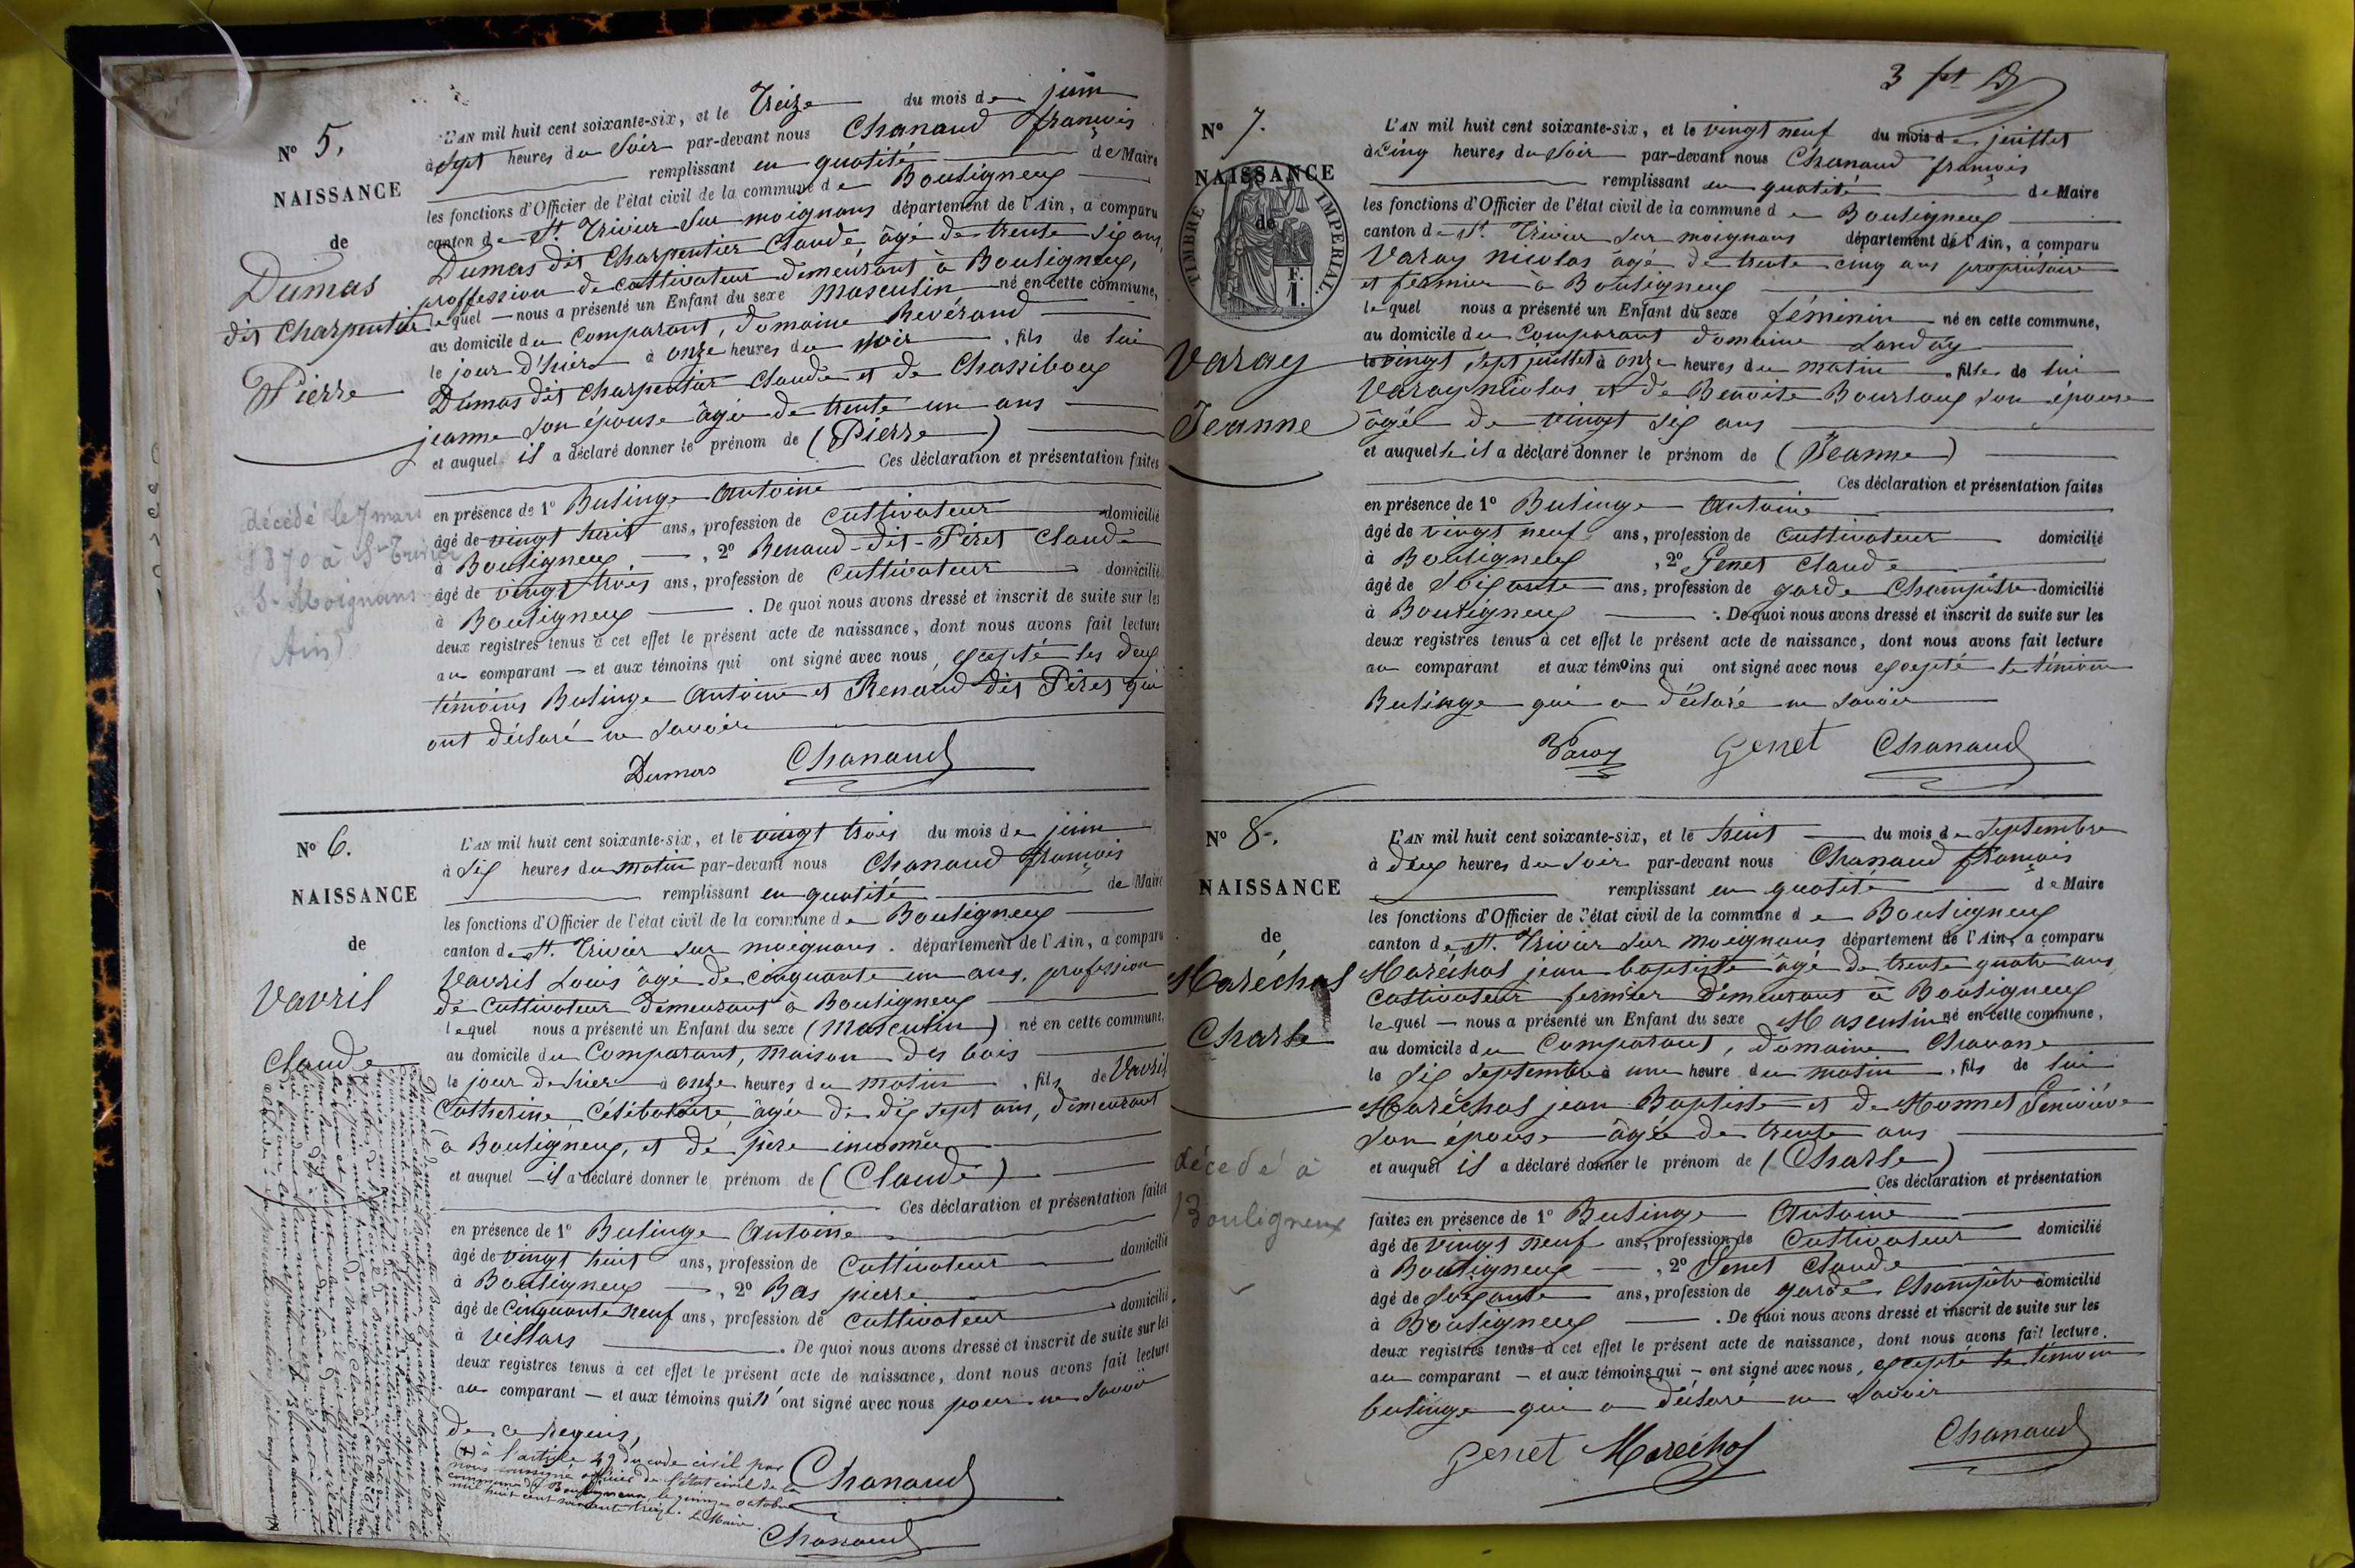 N° 5.
NAISSANCE
de
Dumas
dit Charpentier
Pierre
décédé le 7 mars
1870 à St Trivier
S. Moignans
Ain
L'AN mil huit cent soixante-six, et le Treize du mois de juin
à Sept heures du Soir par-devant nous Chanaud françois
remplissant en qualité de Maire
les fonctions d'Officier de l'état civil de la commune de Bouligneux
canton de St. Trivier sur moignans département de l'Ain, a comparu
Dumas dit Charpentier Claude, âgé de trente six ans,
proffession de cultivateur demeurant à Bouligneux,
lequel nous a présenté un Enfant du sexe masculin né en cette commune,
au domicile du Comparant, domaine Revérand
le jour d'hier à onze heures du soir, fils de lui
Dumas dit Charpentier Claude et de Chassiboux
jeanne son épouse âgée de trente un ans
et auquel il a déclaré donner le prénom de (Pierre)
Ces déclaration et présentation faites
en présence de 1° Bulinge Antoine
âgé de vingt huit ans, profession de Cultivateur domicilié
à Bouligneux, 2° Renaud-dit-Péret Claude
âgé de vingt trois ans, profession de Cultivateur domicilié
à Bouligneux. De quoi nous avons dressé et inscrit de suite sur les
deux registres tenus à cet effet le présent acte de naissance, dont nous avons fait lecture
au comparant et aux témoins qui ont signé avec nous, excepté les deux
témoins Bulinge Antoine et Renaud dit Péret qui
ont déclaré ne savoir
Dumas Chanaud
N° 6.
NAISSANCE
de
Vavril
Claude
L'AN mil huit cent soixante-six, et le vingt trois du mois de juin
à Six heures du matin par-devant nous Chanaud françois
remplissant en qualité de Maire
les fonctions d'Officier de l'état civil de la commune de Bouligneux
canton de St. Trivier sur moignans. département de l'Ain, a comparu
Vavril Louis âgé de cinquante un ans, profession
de Cultivateur demeurant à Bouligneux
lequel nous a présenté un Enfant du sexe (Masculin) né en cette commune,
au domicile du Comparant, Maison des bois
le jour de hier à onze heures du matin, fils de Vavril
Catherine, Célibataire, âgée de dix sept ans, demeurant
à Bouligneux, et de père inconnu
et auquel il a déclaré donner le prénom de (Claude)
Ces déclaration et présentation faites
en présence de 1° Bulinge Antoine
âgé de vingt huit ans, profession de Cultivateur domicilié
à Bouligneux, 2° Bas pierre
âgé de Cinquante neuf ans, profession de Cultivateur domicilié
à Villars. De quoi nous avons dressé et inscrit de suite sur les
deux registres tenus à cet effet le présent acte de naissance, dont nous avons fait lecture
au comparant et aux témoins qui n'ont signé avec nous pour ne savoir
de ce requis,
(+) à l'article 49 du code civil par
nous soussigné officier de l'état civil de la
commune de Bouligneux, le quinze octobre
mil huit cent soixante treize. Le Maire
Chanaud
Chanaud
3 fet
N° 7.
NAISSANCE
de
TIMBRE IMPERIAL.
F.
1.
Varay
Jeanne
L'AN mil huit cent soixante-six, et le vingt neuf du mois de juillet
à Cinq heures du Soir par-devant nous Chanaud françois
remplissant en qualité de Maire
les fonctions d'Officier de l'état civil de la commune de Bouligneux
canton de St. Trivier sur moignans département de l'Ain, a comparu
Varay nicolas âgé de trente cinq ans propriétaire
et fermier à Bouligneux
lequel nous a présenté un Enfant du sexe féminin né en cette commune,
au domicile du Comparant domaine Landay
le vingt sept juillet à onze heures du matin, fille de lui
Varay Nicolas et de Benoite Bourloux son épouse
âgée de vingt six ans
et auquelle il a déclaré donner le prénom de (Jeanne)
Ces déclaration et présentation faites
en présence de 1° Bulinge Antoine
âgé de vingt neuf ans, profession de Cultivateur domicilié
à Bouligneux, 2° Genet Claude
âgé de Soixante ans, profession de garde Champêtre domicilié
à Bouligneux. De quoi nous avons dressé et inscrit de suite sur les
deux registres tenus à cet effet le présent acte de naissance, dont nous avons fait lecture
au comparant et aux témoins qui ont signé avec nous excepté le témoin
Bulinge qui a déclaré ne savoir
Varay Genet Chanaud
N° 8.
NAISSANCE
de
Maréchal
Charle
décédé à
Bouligneux
L'AN mil huit cent soixante-six, et le huit du mois de Septembre
à deux heures du Soir par-devant nous Chanaud françois
remplissant en qualité de Maire
les fonctions d'Officier de l'état civil de la commune de Bouligneux
canton de St. Trivier sur moignans département de l'Ain, a comparu
Maréchal jean baptiste âgé de trente quatre ans
Cultivateur fermier demeurant à Bouligneux
lequel nous a présenté un Enfant du sexe Masculin né en cette commune,
au domicile du Comparant, domaine Chavane
le Six Septembre à une heure du matin, fils de lui
Maréchal jean Baptiste et de Monnet Geneviève
son épouse âgée de trente ans
et auquel il a déclaré donner le prénom de (Charle)
Ces déclaration et présentation
faites en présence de 1° Bulinge Antoine
âgé de vingt neuf ans, profession de Cultivateur domicilié
à Bouligneux, 2° Genet Claude
âgé de Soixante ans, profession de garde Champêtre domicilié
à Bouligneux. De quoi nous avons dressé et inscrit de suite sur les
deux registres tenus à cet effet le présent acte de naissance, dont nous avons fait lecture.
au comparant et aux témoins qui ont signé avec nous, excepté le témoin
bulinge qui a déclaré ne savoir
Genet Maréchal Chanaud